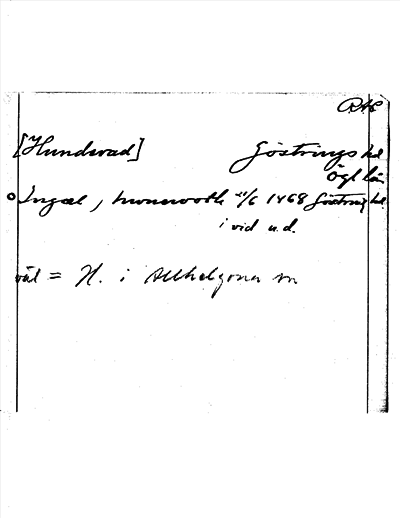 RAÄ
[Hundevad] Göstrings hd
Ögl län
Ingæl, hwnewodh /6 1468 Göstring hd.
i vid u.d.
väl = H. i Allhelgona sn